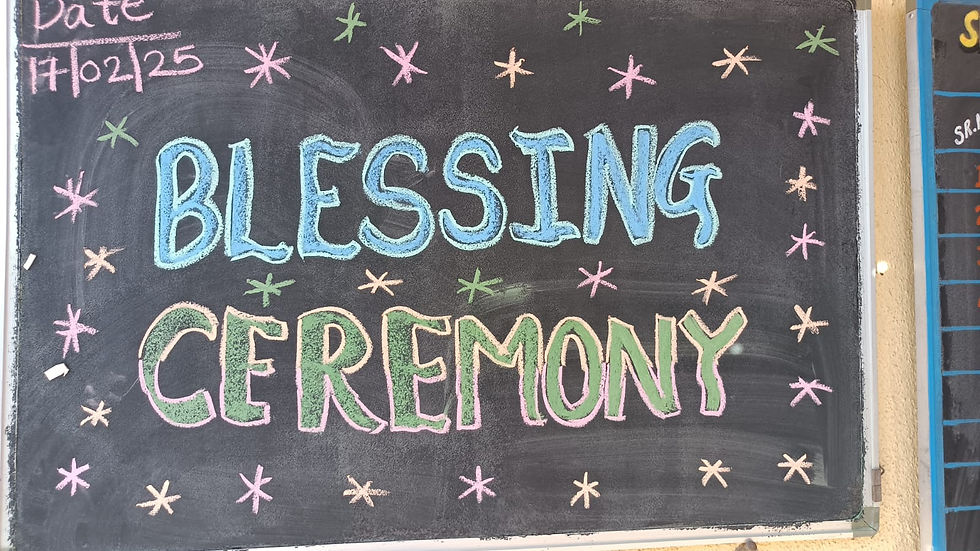 Date
17/02/25
BLESSING
CEREMONY